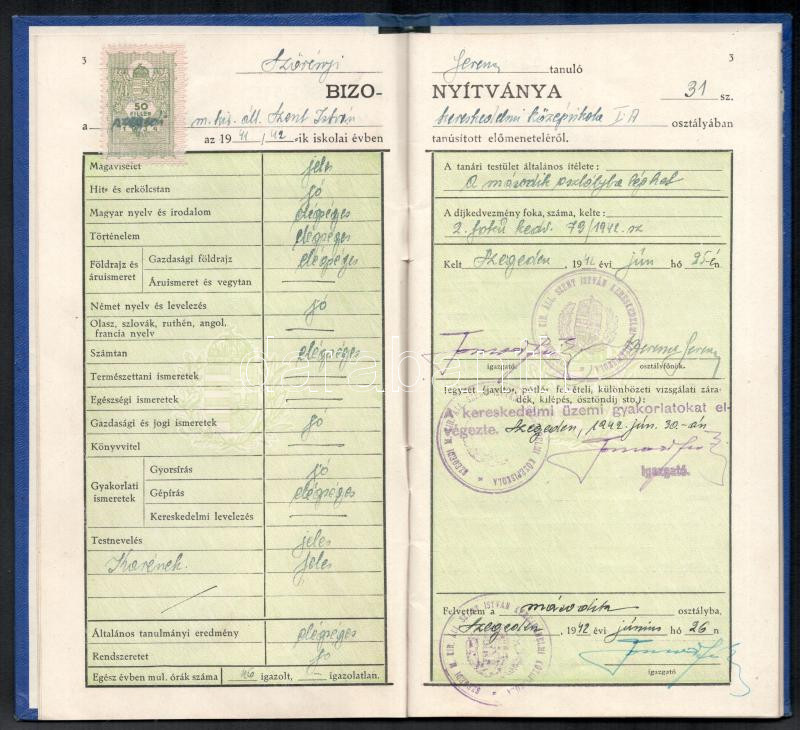 3
50
FILLÉR
Szörényi
BIZO-
a m. kir. áll. Szent István
az 1941/42-ik iskolai évben
Magaviselet jeles
Hit- és erkölcstan jó
Magyar nyelv és irodalom elégséges
Történelem elégséges
Földrajz és áruismeret
Gazdasági földrajz elégséges
Áruismeret és vegytan —
Német nyelv és levelezés jó
Olasz, szlovák, ruthén, angol,
francia nyelv —
Számtan elégséges
Természettani ismeretek —
Egészségi ismeretek —
Gazdasági és jogi ismeretek jó
Könyvvitel —
Gyakorlati ismeretek
Gyorsírás jó
Gépírás elégséges
Kereskedelmi levelezés —
Testnevelés jeles
Karének jeles
Általános tanulmányi eredmény elégséges
Rendszeretet jó
Egész évben mul. órák száma igazolt, — igazolatlan.
3
Ferenc tanuló
NYÍTVÁNYA 31 sz.
kereskedelmi középiskola I. A osztályában
tanúsított előmeneteléről.
A tanári testület általános ítélete:
A második osztályba léphet
A díjkedvezmény foka, száma, kelte:
2. fokú kedv. 79/1942. sz
Kelt Szegeden, 1942 évi jún hó 25-én
igazgató
osztályfőnök.
Jegyzet (javító, pótló, felvételi, különbözeti vizsgálati zára-
dék, kilépés, ösztöndíj stb.):
A kereskedelmi üzemi gyakorlatokat el-
végezte. Szegeden, 1942. jún. 30.-án
Igazgató.
SZEGEDI M. KIR. ÁLL. SZENT ISTVÁN KERESKEDELMI KÖZÉPISKOLA
Felvettem a második osztályba,
Szegeden, 1942 évi június hó 26 n
igazgató
SZEGEDI M. KIR. ÁLL. SZENT ISTVÁN KERESKEDELMI KÖZÉPISKOLA
darabanth